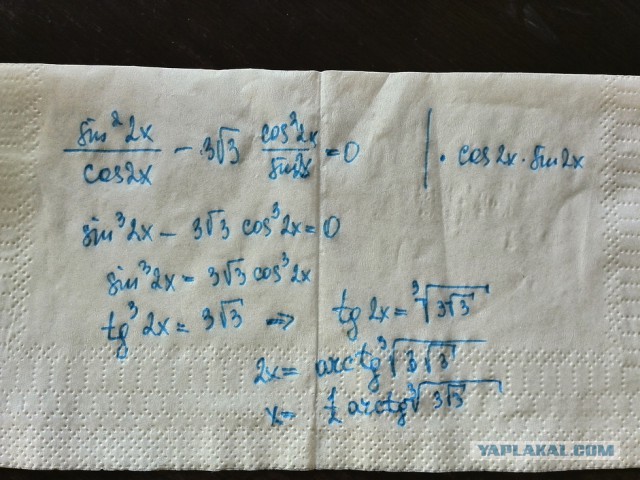 sin² 2x / cos2x − 3√3 cos² 2x / sin2x = 0 | · cos2x · sin2x
sin³ 2x − 3√3 cos³ 2x = 0
sin³ 2x = 3√3 cos³ 2x
tg³ 2x = 3√3 => tg 2x = ³√(3√3)
2x = arctg ³√(3√3)
x = 1/2 arctg ³√(3√3)
YAPLAKAL.COM